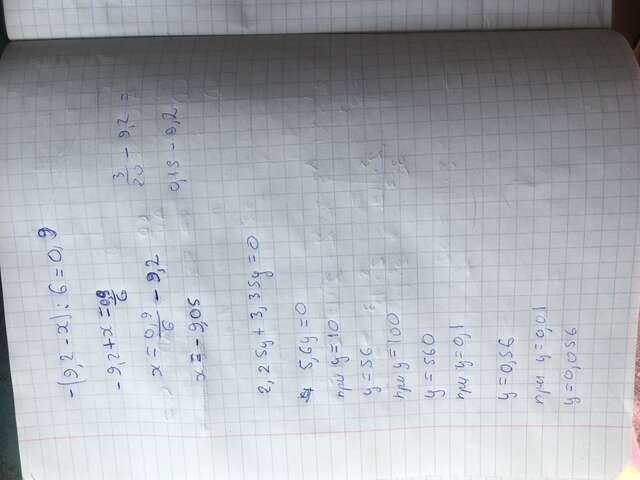 -(9,2-x):6=0,9
-9,2+x=0,9/6
x=0,9/6-9,2
3/20-9,2=
0,15-9,2
x=-9,05
2,25y+3,35y=0
5,6y=0
при y=10
y=56
при y=100
y=560
при y=0,1
y=0,56
при y=0,01
y=0,056